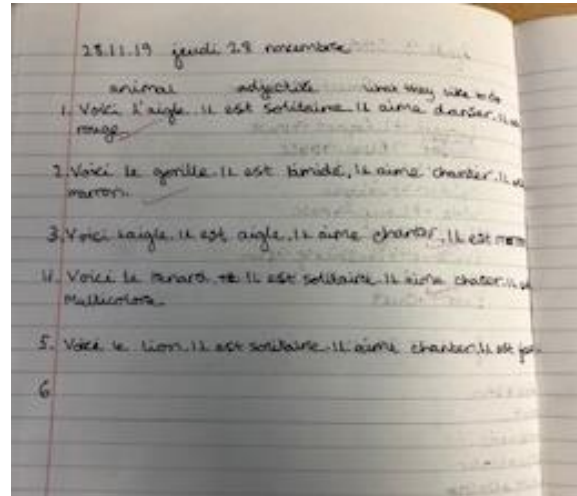 28.11.19 jeudi 28 novembre
animal adjective what they like to do
1. Voici l'aigle. Il est solitaire. Il aime danser. Il
rouge.
2. Voici le gorille. Il est timide, Il aime chanter. Il
marron.
3. Voici l'aigle. Il est aigle. Il aime chanter, Il est
4. Voici le renard. Il est solitaire. Il aime chater. Il
Multicolore.
5. Voici le lion. Il est solitaire. Il aime chanter. Il est
6